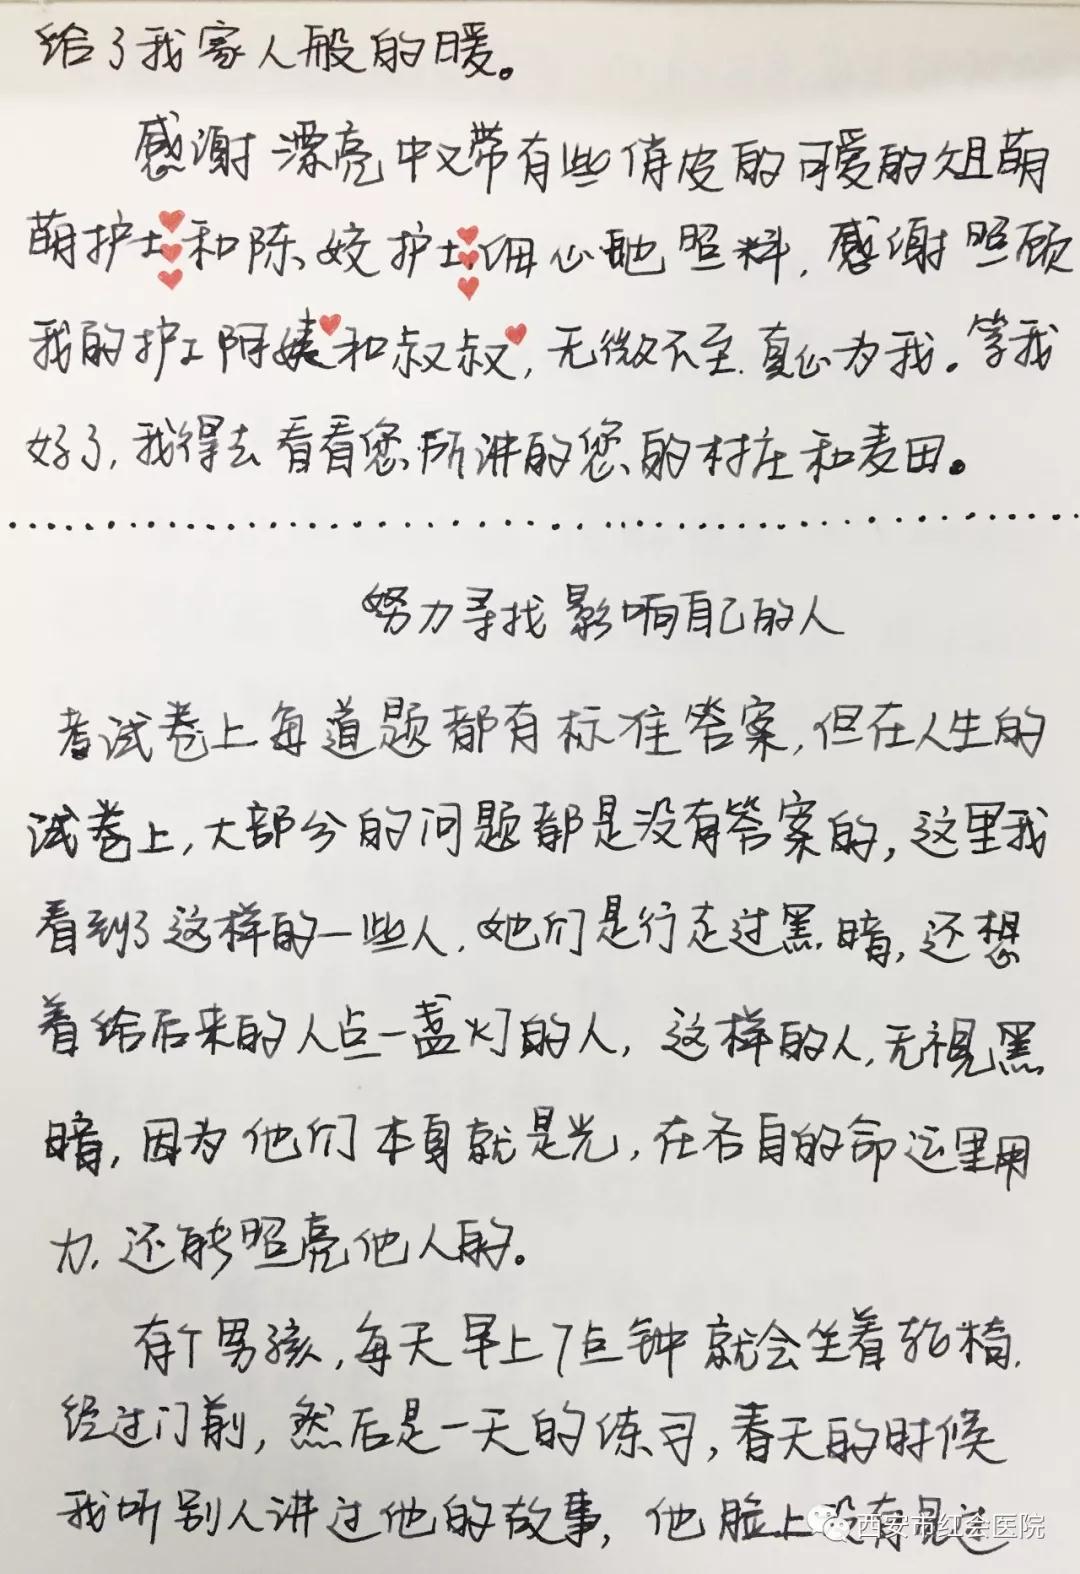 给了我家人般的暖。
感谢漂亮中又带有些俏皮的可爱的俎萌
萌护士和陈姣护士细心地照料,感谢照顾
我的护工阿姨和叔叔,无微不至.真心为我。等我
好了,我得去看看您所讲的您的村庄和麦田。
努力寻找影响自己的人
考试卷上每道题都有标准答案,但在人生的
试卷上,大部分的问题都是没有答案的,这里我
看到了这样的一些人.她们是行走过黑暗,还想
着给后来的人点一盏灯的人,这样的人,无视黑
暗,因为他们本身就是光,在各自的命运里用
力,还能照亮他人的。
有个男孩,每天早上7点钟就会坐着轮椅.
经过门前,然后是一天的练习,春天的时候
我听别人讲过他的故事,他脸上没有见过
西安市红会医院